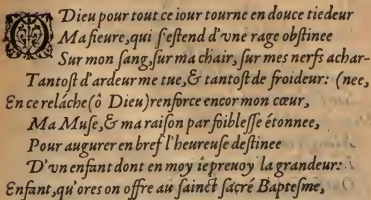 O Dieu pour tout ce iour tourne en douce tiedeur
Ma fieure, qui ſ'eſtend d'vne rage obſtinee
Sur mon ſang, ſur ma chair, ſur mes nerfs achar-
Tantoſt d'ardeur me tue, & tantoſt de froideur: (nee,
En ce relâche (ô Dieu) renforce encor mon cœur,
Ma Muſe, & ma raiſon par foibleſſe étonnee,
Pour augurer en bref l'heureuſe deſtinee
D'vn enfant dont en moy ie preuoy la grandeur:
Enfant, qu'ores on offre au ſainct ſacré Bapteſme,